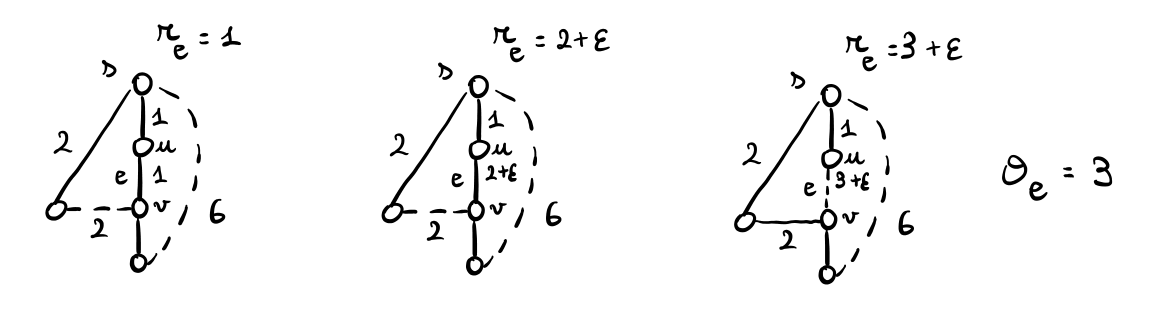 r_e = 1
s
2
1
u
e 1
v
2
6
r_e = 2+ε
s
2
1
u
e 2+ε
v
2
6
r_e = 3+ε
s
2
1
u
e 3+ε
v
2
6
θ_e = 3